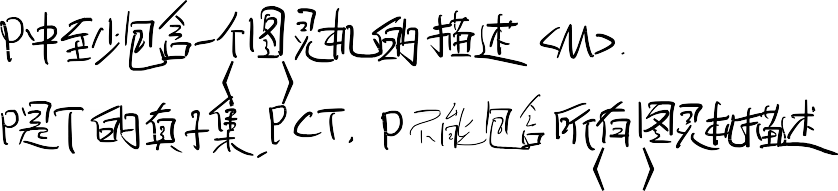 P中至少包含一个图灵机的描述 <M>.
< >
P是T的真子集, P⊂T. P不能包含所有图灵机描述
< >